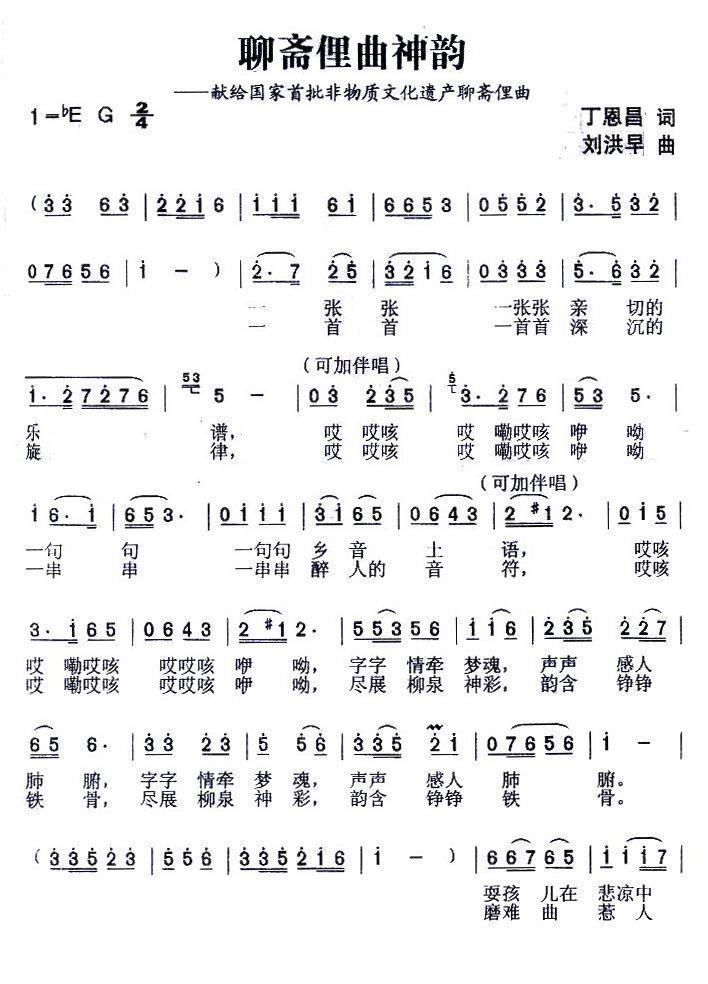 聊斋俚曲神韵
——献给国家首批非物质文化遗产聊斋俚曲
1=♭E G 2/4
丁恩昌 词
刘洪早 曲
(3̇3̇ 63̇ | 2̇2̇1̇6 | 1̇1̇1̇ 61̇ | 6653 | 0552 | 3· 532 |
07656 | 1̇ - ) | 2̇·7 2̇5 | 3̇2̇1̇6 | 03̇3̇3̇ | 5̇·6̇ 3̇2̇ |
一 张 张 一张张 亲 切的
一 首 首 一首首 深 沉的
(可加伴唱)
1̇·2̇7276 | 53 5 - | 03̇ 2̇3̇5 | 5 3̇·2̇76 | 53 5· |
乐 谱, 哎 哎咳 哎 嘞哎咳 咿 呦
旋 律, 哎 哎咳 哎 嘞哎咳 咿 呦
(可加伴唱)
1̇6·1̇ | 653· | 01̇1̇1̇ | 3̇1̇65 | 0643 | 2#12· | 01̇5 |
一句 句 一句句 乡 音 土 语, 哎咳
一串 串 一串串 醉 人的 音 符, 哎咳
3·1̇65 | 0643 | 2#12· | 55356 | 1̇1̇6 | 2̇3̇5 2̇2̇7 |
哎 嘞哎咳 哎哎咳 咿 呦, 字字 情牵 梦魂, 声声 感人
哎 嘞哎咳 哎哎咳 咿 呦, 尽展 柳泉 神彩, 韵含 铮铮
65 6· | 3̇3̇ 2̇3̇ | 5 56 | 3̇3̇5 2̇1̇ | 07656 | 1̇ - |
肺 腑, 字字 情牵 梦 魂, 声声 感人 肺 腑。
铁 骨, 尽展 柳泉 神 彩, 韵含 铮铮 铁 骨。
(3̇3̇52̇3̇ | 556 | 3̇3̇52̇1̇6 | 1̇ - ) | 66765 | 1̇1̇1̇7 |
耍孩 儿在 悲凉中
磨难 曲 惹 人